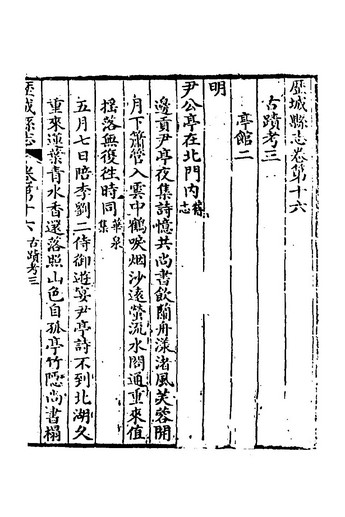 歷城縣志卷第十六
古蹟考三
亭館二
明
尹公亭在北門內舊志
邊貢尹亭夜集詩憶共尚書飲蘭舟漾渚風芙蓉開
月下簫管入雲中鶴唳烟沙遠螢流水閣通重來值
搖落無復徃時同華泉集
五月七日陪李劉二侍御遊宴尹亭詩不到北湖久
重來蓮葉青水香還落照山色自孤亭竹隱尚書榻
歷城縣志 卷第十六 古蹟考三